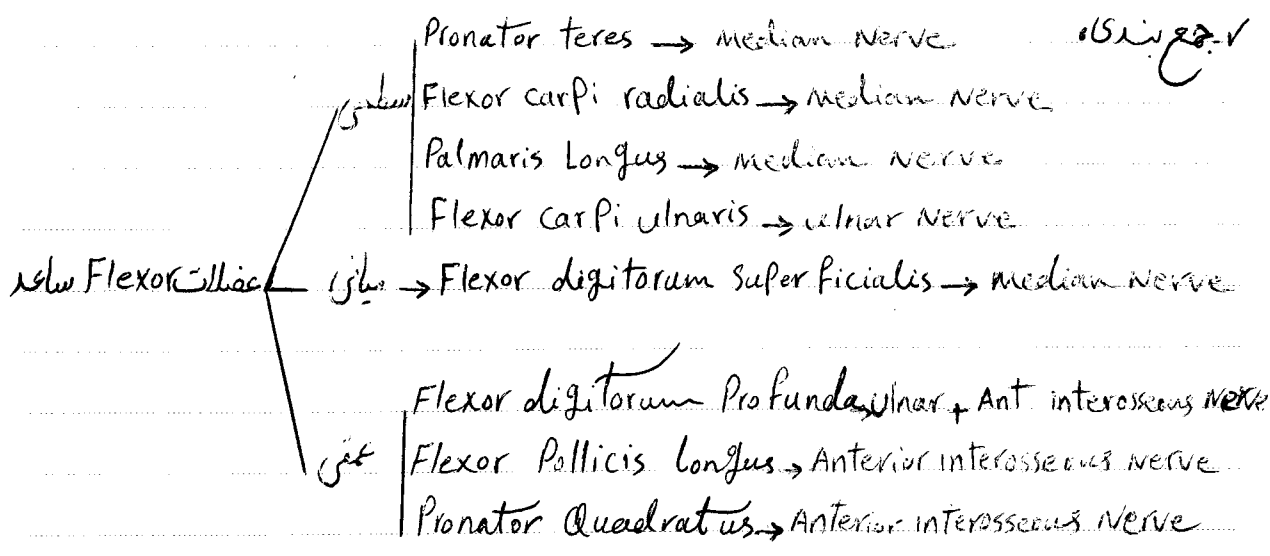 ✓ جمع بندی:
Pronator teres → Median Nerve
سطحی Flexor carpi radialis → Median Nerve
Palmaris Longus → Median Nerve
Flexor carpi ulnaris → ulnar Nerve
عضلات Flexor ساعد
میانی → Flexor digitorum superficialis → Median Nerve
Flexor digitorum Profunda → ulnar + Ant interosseous Nerve
عمقی Flexor Pollicis longus → Anterior interosseous Nerve
Pronator Quadratus → Anterior interosseous Nerve